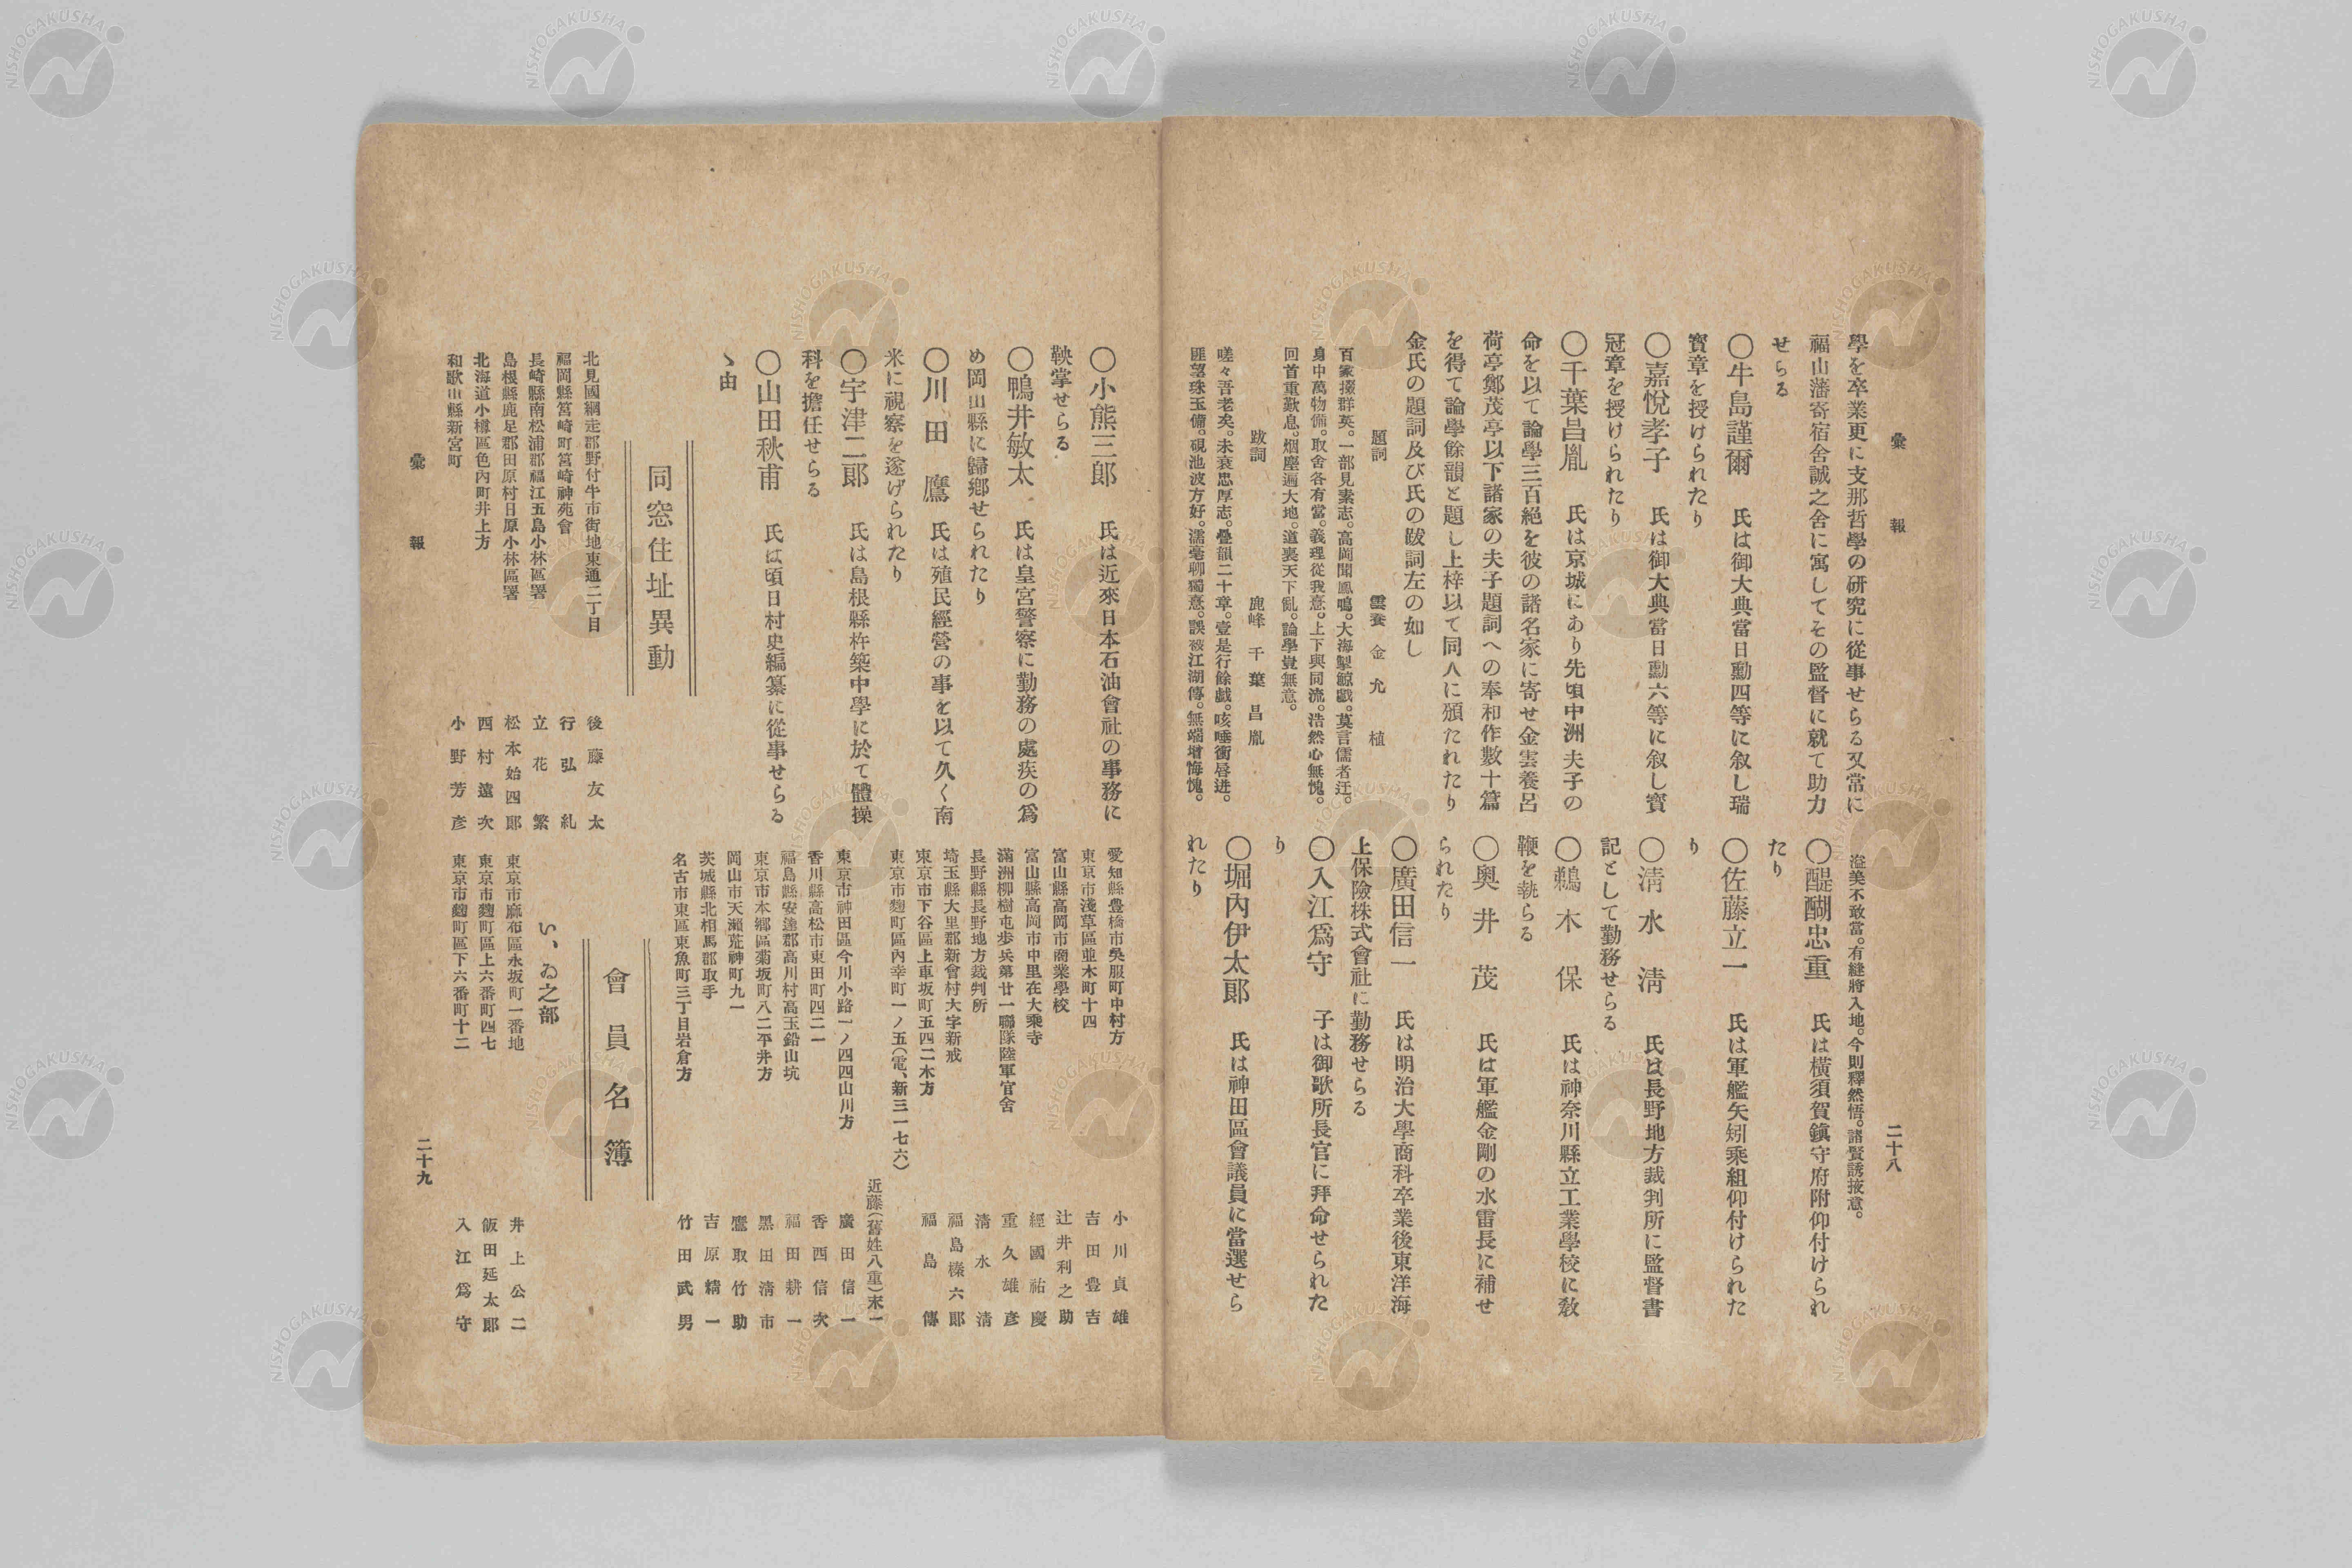 彙報
二十八
學を卒業更に支那哲學の研究に從事せらる又常に
福山藩寄宿舍誠之舍に寓してその監督に就て助力
せらる
〇牛島謹爾　氏は御大典當日勳四等に敘し瑞
寳章を授けられたり
〇嘉悅孝子　氏は御大典當日勳六等に敘し寳
冠章を授けられたり
〇千葉昌胤　氏は京城にあり先頃中洲夫子の
命を以て論學三百絕を彼の諸名家に寄せ金雲養呂
荷亭鄭茂亭以下諸家の夫子題詞への奉和作數十篇
を得て論學餘韻と題し上梓以て同人に頒たれたり
金氏の題詞及び氏の跋詞左の如し
題詞　雲養　金允植
百家掇群英。一部見素志。高岡聞鳳鳴。大海掣鯨戲。莫言儒者迂。
身中萬物備。取舍各有當。義理從我意。上下與同流。浩然心無愧。
回首重歎息。烟塵遍大地。道喪天下亂。論學豈無意。
跋詞　鹿峰　千葉昌胤
嗟々吾老矣。未衰忠厚志。疊韻二十章。壹是行餘戲。咳唾衝唇迸。
匪望珠玉備。硯池波方好。濡毫聊獨意。誤被江湖傳。無端增悔愧。
溢美不敢當。有縫將入地。今則釋然悟。諸賢誘掖意。
〇醍醐忠重　氏は橫須賀鎭守府附仰付けられ
たり
〇佐藤立一　氏は軍艦矢矧乘組仰付けられた
り
〇淸水淸　氏は長野地方裁判所に監督書
記として勤務せらる
〇鵜木保　氏は神奈川縣立工業學校に敎
鞭を執らる
〇奧井茂　氏は軍艦金剛の水雷長に補せ
られたり
〇廣田信一　氏は明治大學商科卒業後東洋海
上保險株式會社に勤務せらる
〇入江爲守　子は御歌所長官に拜命せられた
り
〇堀內伊太郞　氏は神田區會議員に當選せら
れたり
〇小熊三郞　氏は近來日本石油會社の事務に
鞅掌せらる
〇鴨井敏太　氏は皇宮警察に勤務の處疾の爲
め岡山縣に歸鄕せられたり
〇川田鷹　氏は殖民經營の事を以て久く南
米に視察を遂げられたり
〇宇津二郞　氏は島根縣杵築中學に於て體操
科を擔任せらる
〇山田秋甫　氏は頃日村史編纂に從事せらる
ゝ由
同窓住址異動
北見國網走郡野付牛市街地東通二丁目　後藤友太
福岡縣筥崎町筥崎神苑會　行弘糺
長崎縣南松浦郡福江五島小林區署　立花繁
島根縣鹿足郡田原村日原小林區署　松本始四郞
北海道小樽區色內町井上方　西村遠次
和歌山縣新宮町　小野芳彥
愛知縣豊橋市吳服町中村方　小川貞雄
東京市淺草區並木町十四　吉田豊吉
富山縣高岡市商業學校　辻井利之助
富山縣高岡市中里在大乘寺　經國祐慶
滿洲柳樹屯步兵第廿一聯隊陸軍官舍　重久雄彥
長野縣長野地方裁判所　淸水淸
埼玉縣大里郡新會村大字新戒　福島榛六郞
東京市下谷區上車坂町五四二木方　福島傳
東京市麴町區內幸町一ノ五(電、新三一七六)
近藤(舊姓八重)末一
東京市神田區今川小路一ノ四四山川方　廣田信一
香川縣高松市東田町四二一　香西信次
福島縣安達郡高川村高玉鉛山坑　福田耕一
東京市本鄕區菊坂町八二平井方　黑田淸市
岡山市天瀨荒神町九一　鷹取竹助
茨城縣北相馬郡取手　吉原精一
名古市東區東魚町三丁目岩倉方　竹田武男
會員名簿
い、ゐ之部
東京市麻布區永坂町一番地　井上公二
東京市麴町區上六番町四七　飯田延太郞
東京市麴町區下六番町十二　入江爲守
彙報
二十九
NISHOGAKUSHA